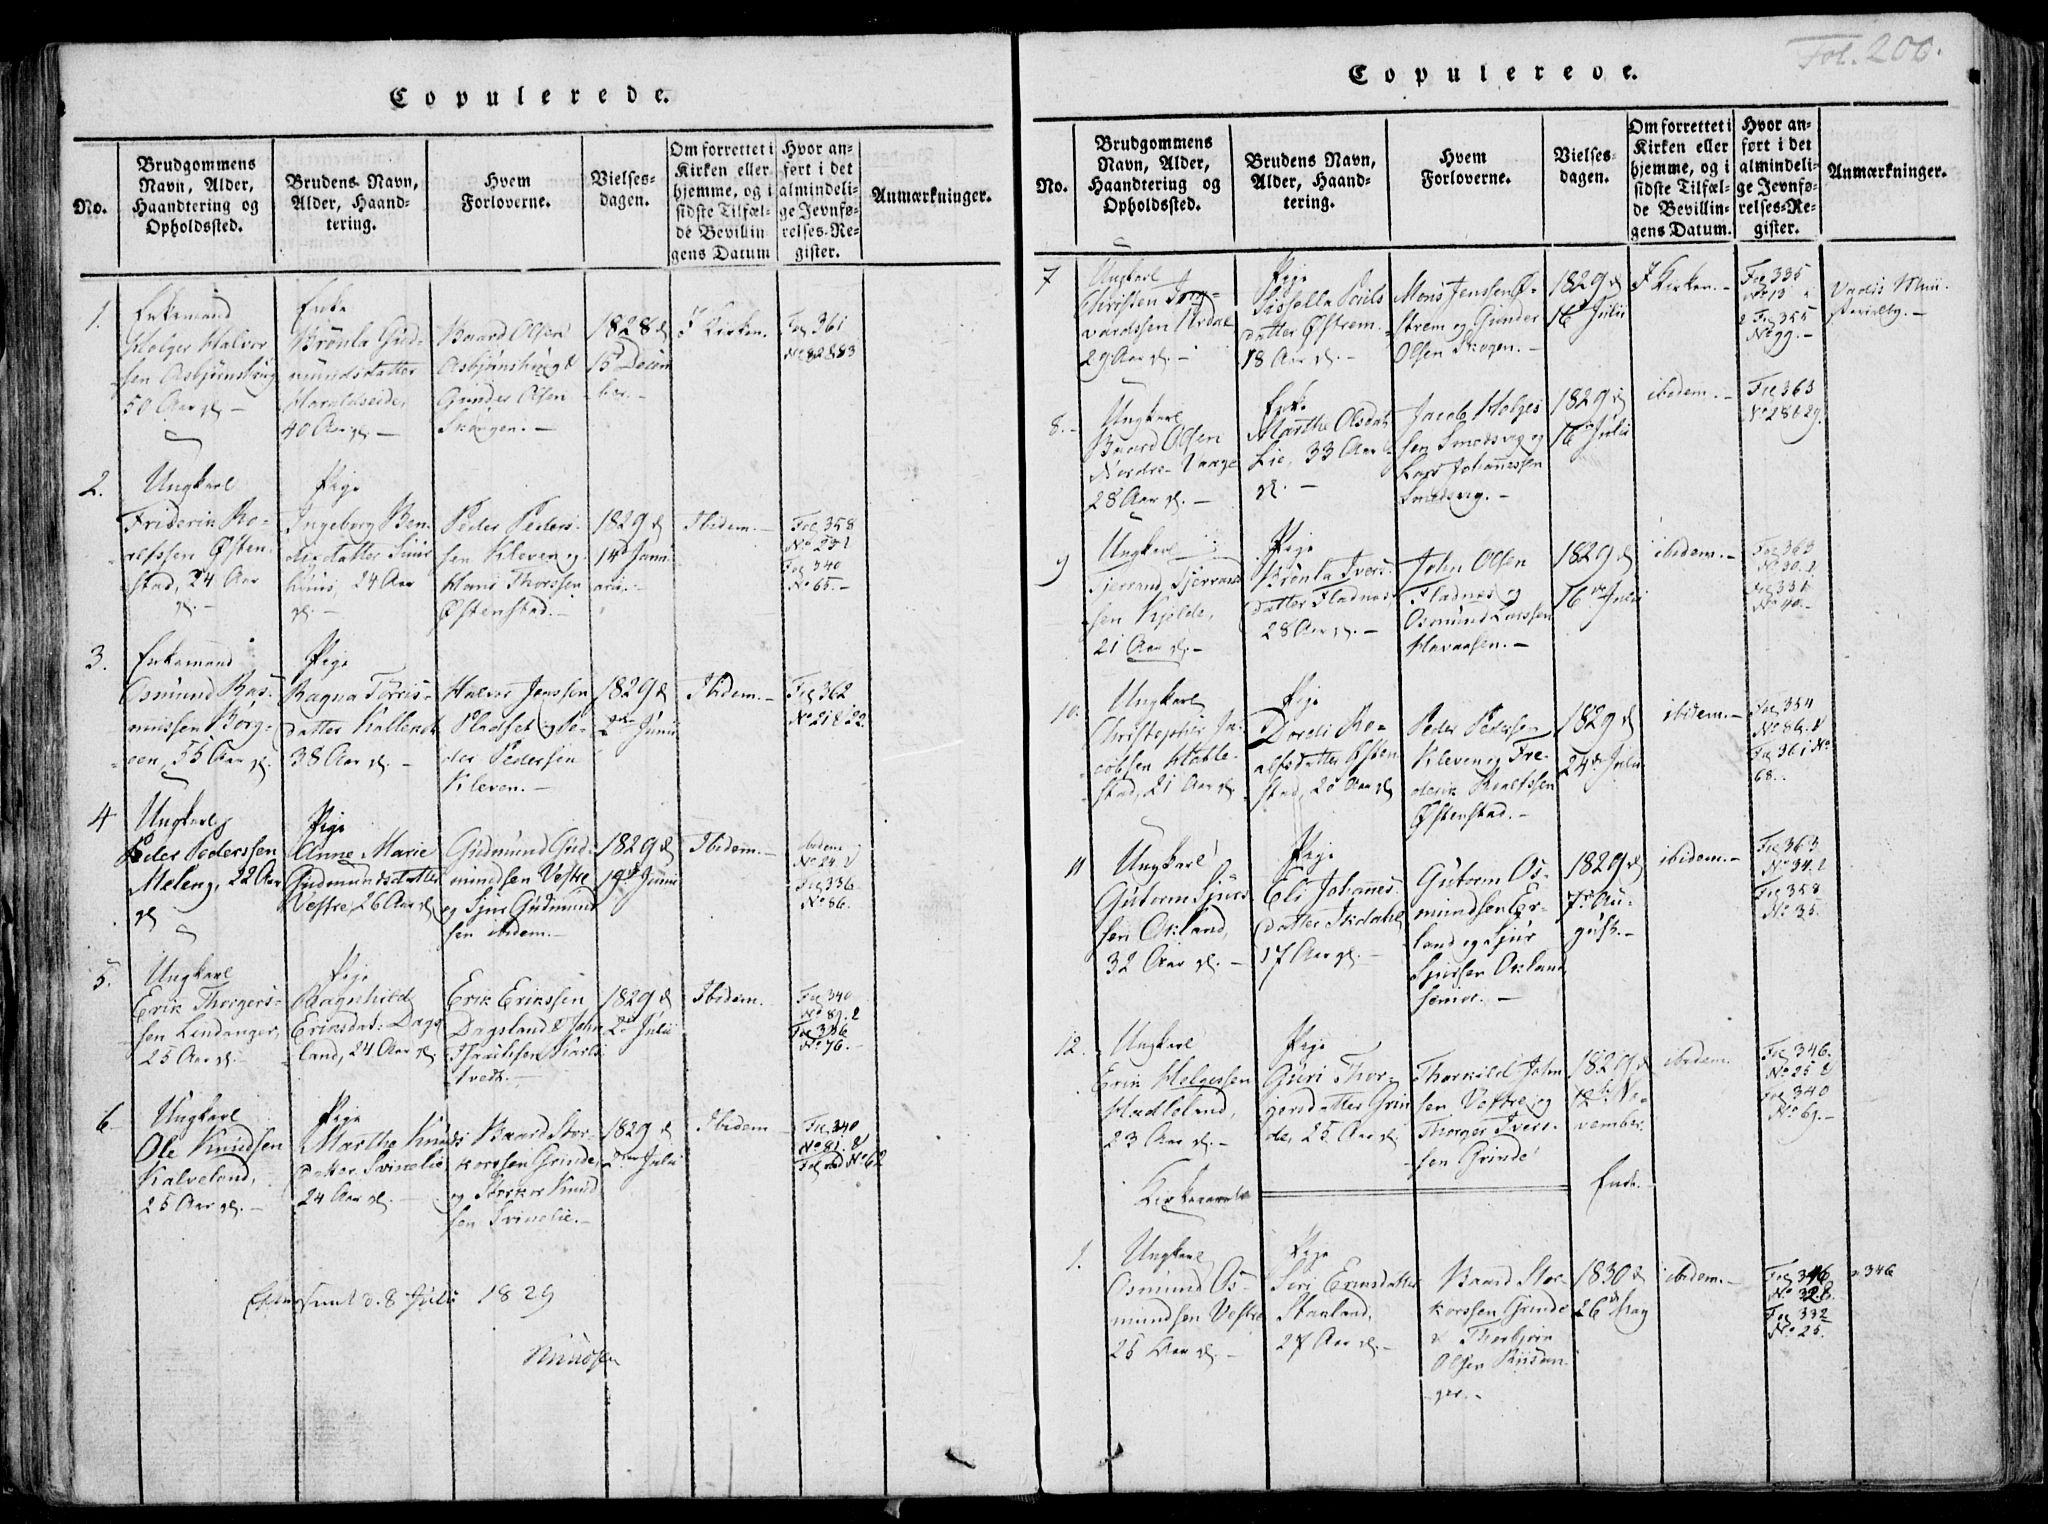 Fol. 200.
Copulerede.
No.
Brudgommens
Navn, Alder,
Haandtering og
Opholdssted.
Brudens Navn,
Alder, Haand-
tering.
Hvem
Forloverne.
Vielses-
dagen.
Om forrettet i
Kirken eller
hjemme, og i
sidste Tilfæl-
de Bevillin
gens Datum
Hvor an-
ført i det
almindeli-
ge Jevnfø-
relses-Re-
gister.
Anmærkninger.
1.
Enkemand
Holger Halvor
sen Asbjørnshoug
50 Aar gl. -
Enke
Brønla Gud-
mundsdatter
Haraldseide,
40 Aar gl. -
Baard Olsen
Asbjørnshoug &
Gunder Olsen
Skougen. -
1828 d
15 Decem
ber. -
I Kirken.
Fol 361
No 82 & 83
2.
Ungkarl
Friderik Ro-
alfssen Østen-
stad, 24 Aar
gl. -
Pige
Ingeborg Ben-
24 Aar
gl. -
Peder Peders-
sen Kleven og
Hans Thorssen
Østenstad. -
1829 d
14d Janu
arii. -
Ibidem. -
Fol 358
No 23 &
Fol 340
No 65. -
3.
Enkemand
Osmund Ras-
mussen Borg-
een, 55 Aar gl.
Pige
Ragna Torris-
datter Kallendt
38 Aar gl. -
Halvor Jenssen
Pladset og Pe-
der Pedersen
Kleven. -
1829 d
2den Junii
Ibidem. -
Fol 362
No 21 & 22.
4
Ungkarl
Peder Pederssen
Meleng, 22 Aar
gl
Pige
Anne Marie
Gudmundsdatter
Vestre, 26 Aar gl
Gudmund Gud-
mundsen Vestre
og Sjur Gudmund
sen ibidem. -
1829 d
19d Junii
Ibidem. -
ibidem
No 24. &
Fol 336
No 86.
5.
Ungkarl
Erik Thorgers-
sen Lindanger,
25 Aar gl. -
Pige
Ragnhild
Eriksdat: Dags
land, 24 Aar gl.
Erik Erikssen
Dagsland & John
tvedt. -
1829 d
2de Julii
Ibidem.
Fol 340
No 89. &
Fol 336
No 76. -
6
Ungkarl
Ole Knudsen
Kalveland,
25 Aar gl. -
Pige
Marthe Knuds
datter Svinelie
24 Aar gl. -
Baard Stor-
korssen Grinde,
og Storkor Knud
sen Svinelie. -
1829 d
2den Julii
Ibidem -
Fol 340
No 81. &
Fol No 62
d. 8 Juli 1829
Knudsen
Copulerede.
No.
Brudgommens
Navn, Alder,
Haandtering og
Opholdssted.
Brudens Navn,
Alder, Haand-
tering.
Hvem
Forloverne.
Vielses-
dagen.
Om forrettet i
Kirken eller
hjemme, og i
sidste Tilfæl-
de Bevillin-
gens Datum.
Hvor an-
ført i det
almindeli-
ge Jevnfø-
relses-Re-
gister.
Anmærkninger.
7
Ungkarl
Christen
29 Aar gl. -
Pige
Sissella Pouls
datter Østrem-
18 Aar gl. -
Mons Jenssen Ø-
strem og Gunder
Olsen Skogen. -
1829 d
16 Julii
I Kirken. -
Fol 335
No 13
& Fol 355
No 99. -
8. -
Ungkarl
Baard Olsen
Nordre-Vaage
28 Aar gl. -
Enke
Marthe Olsdat,
Lie, 33 Aar
gl. -
Jacob Holges
sen Smedsvig og
Lars Johannessen
Smedsvig. -
1829 d
16 Julii
ibidem. -
Fol 363
No 28 & 29.
9
Ungkarl
Sjerand Sjerrand
sen Kjolde,
21 Aar gl. -
Pige
Brønla Ivers
datter Fladnes
28 Aar gl. -
John Olsen
Fladnes og
Osmund Larssen
Havaasen. -
1829 d
16de Julii
ibidem. -
Fol 363
No 30. &
Fol 331
No 40. -
10.
Ungkarl
Christopher Ja-
cobsen Hatle-
stad, 21 Aar gl
Pige
Dordi Ro-
alfsdatter Østen
stad, 20 Aar gl
Peder Pedersen
Kleven og Fre-
derik Roalfssen
Østenstad. -
1829 d
24de Julii
ibidem. -
Fol 354
No 86. &
Fol 361 No
68. -
11
Ungkarl
Gutorm Sjurs
sen Økland,
32 Aar gl. -
Pige
Eli Johannes-
datter
17 Aar gl. -
Gutorm Os-
mundsen Er-
land og Sjur
Sjursen Økland
senior. -
1829 d
7de Au-
gust. -
ibidem. -
Fol 363
No 34. &
Fol 358
No 35.
12.
Ungkarl
Erik Helgessen
Hadleland,
23 Aar gl. -
Pige
Guri Thor-
gersdatter Grin
de, 25 Aar gl.
Thorkild John
sen Vestre og
Thorger Ivers-
sen Grinde
1829 d
12te No-
vember.
ibidem.
Fol 346.
No 25 &
Fol 340
No 69. -
Kirkeaaret
Ende. -
1.
Ungkarl
Osmund Os-
mundsen Vestre
26 Aar gl. -
Pige
Siri Eriksdatter
Stanland,
27 Aar gl. -
Baard Stor-
korssen Grinde
& Thorbjørn
Olsen
ger. -
1830 d
26d May
ibidem. -
Fol 346
No 32 &
Fol 332
No 25.
346